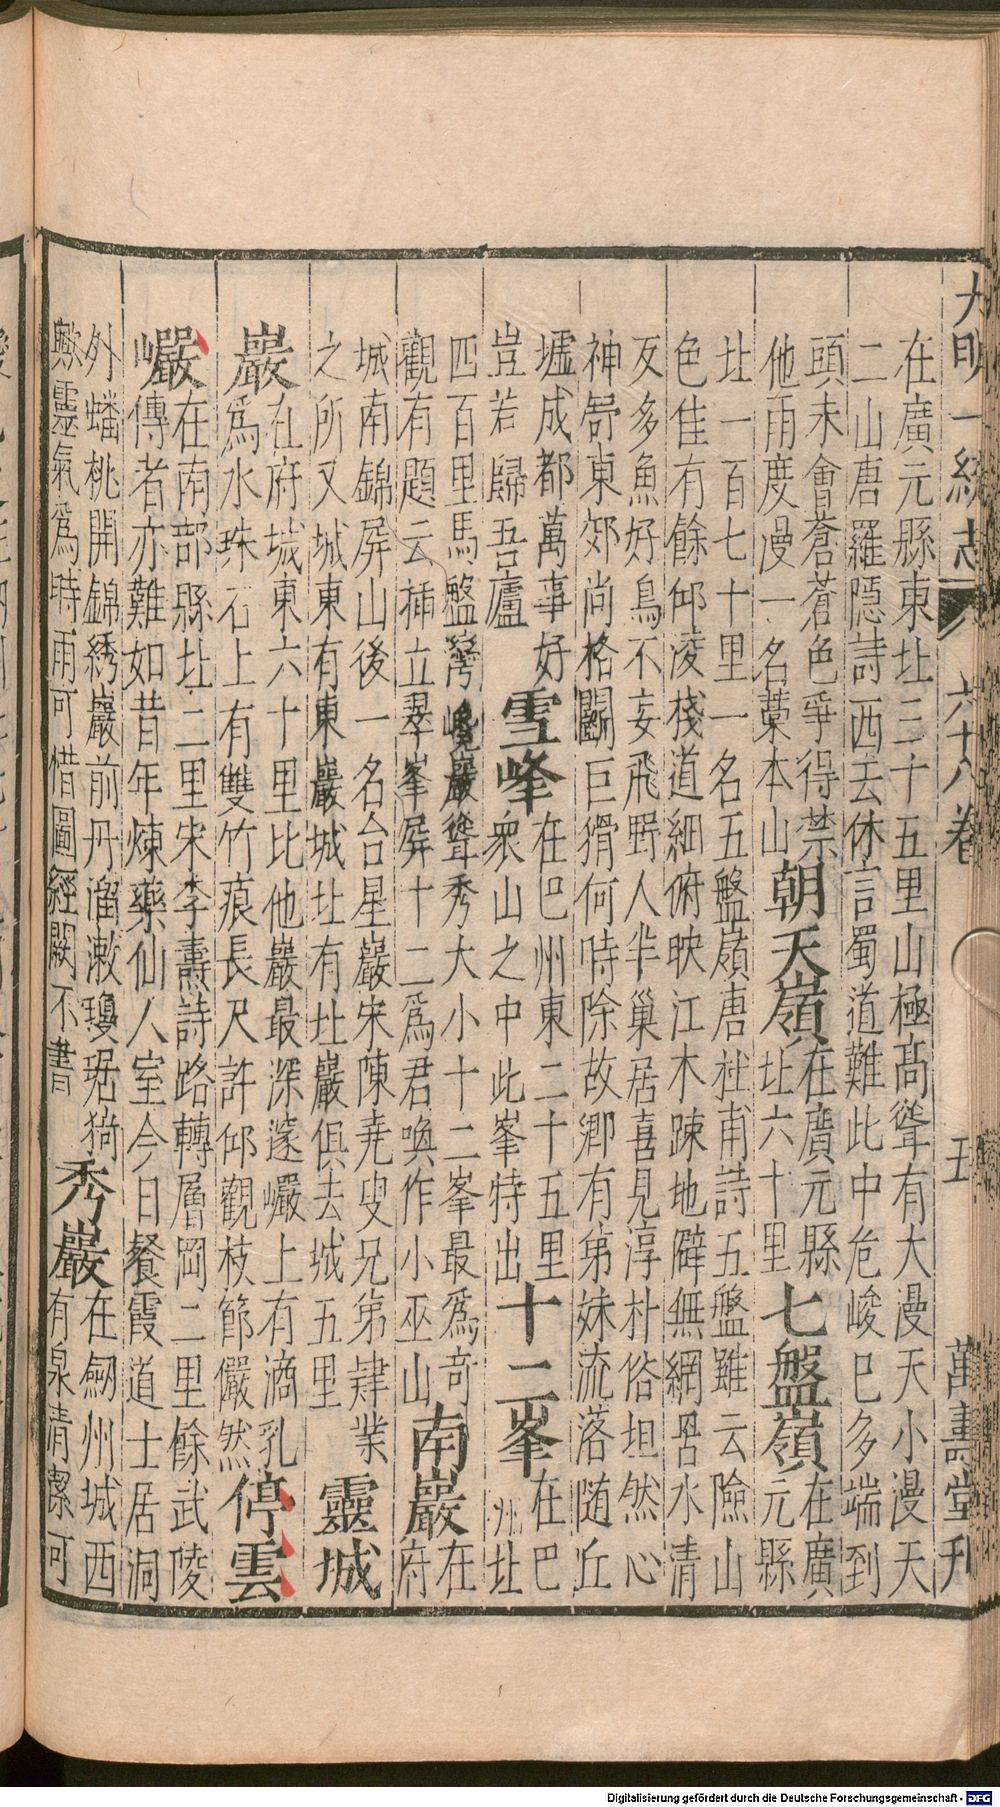 大明一統志 六十八卷 五 萬壽堂刊
在廣元縣東北三十五里山極高聳有大漫天小漫天
二山唐羅隱詩西去休言蜀道難此中危峻已多端到
頭未會蒼蒼色爭得禁
他兩度漫一名藁本山
朝天嶺
在廣元縣
北六十里
七盤嶺
在廣
元縣
北一百七十里一名五盤嶺唐杜甫詩五盤雖云險山
色佳有餘仰凌棧道細俯映江木踈地僻無網罟水清
反多魚好鳥不妄飛野人半巢居喜見淳朴俗坦然心
神舒東郊尚格鬭巨猾何時除故鄉有弟妹流落随丘
墟成都萬事好
豈若歸吾廬
雪峰
在巴州東二十五里
衆山之中此峯特出
十二峯
在巴
州北
四百里馬盤灣巉巖聳秀大小十二峯最爲竒
觀有題云揷立翠峯屏十二爲君喚作小巫山
南巖
在
府
城南錦屏山後一名台星巖宋陳堯叟兄弟肄業
之所又城東有東巖城北有北巖俱去城五里
靈城
巖
在府城東六十里比他巖最深邃巖上有滴乳
爲水珠石上有雙竹痕長尺許仰觀枝節儼然
停雲
巖
在南部縣北二里宋李燾詩路轉層岡二里餘武陵
傳者亦難如昔年煉藥仙人室今日餐霞道士居洞
外蟠桃開錦綉巖前丹溜漱瓊琚猗
歟靈氣爲時雨可惜圖經闕不書
秀巖
在劒州城西
有泉清潔可
Digitalisierung gefördert durch die Deutsche Forschungsgemeinschaft - DFG